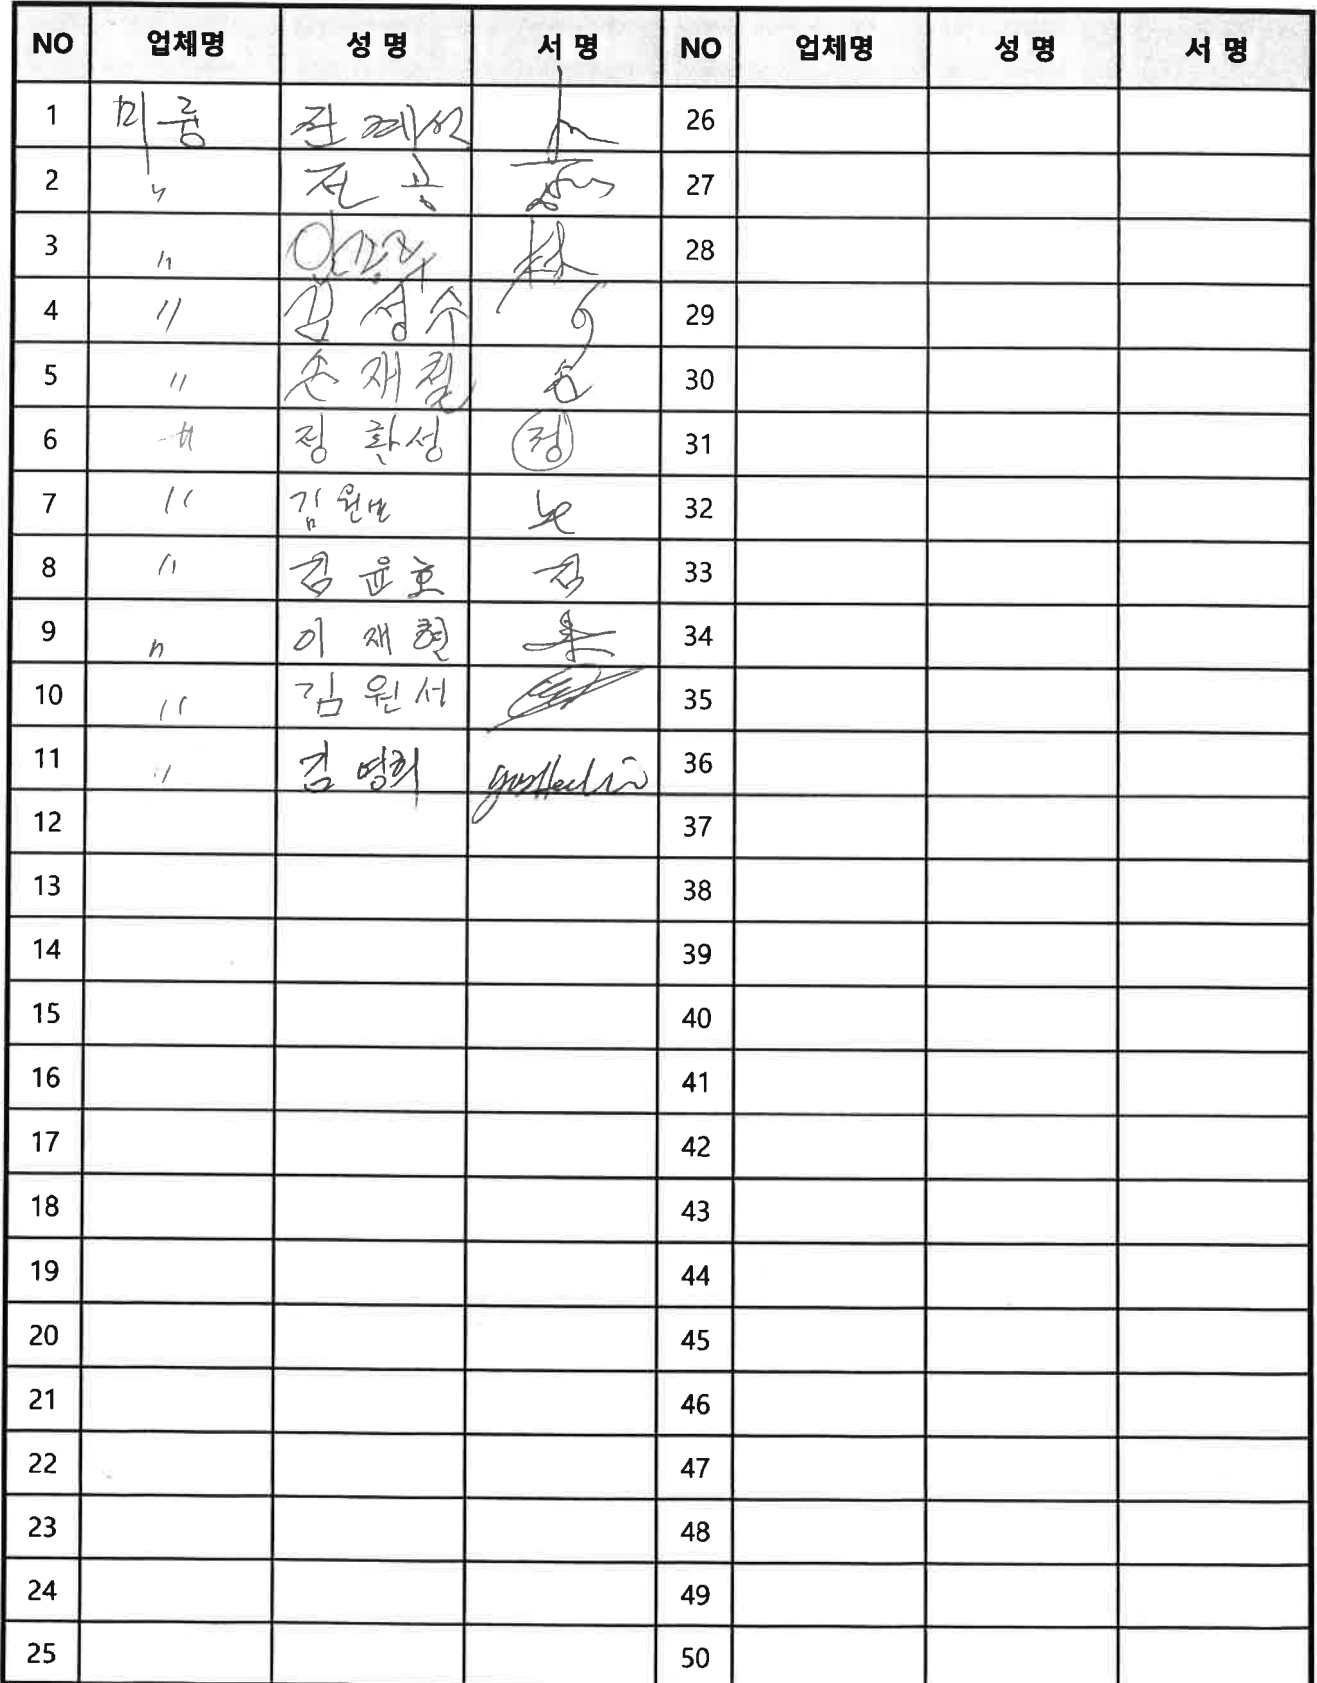 NO 업체명 성 명 서 명 NO 업체명 성 명 서 명
1 미룸 26
2 〃 전 공 27
3 〃 28
4 〃 김 성수 29
5 〃 손 재철 30
6 〃 정 환성 정 31
7 〃 김 32
8 〃 김 윤호 김 33
9 〃 이 재현 34
10 〃 김 원서 35
11 〃 김 영희 36
12 37
13 38
14 39
15 40
16 41
17 42
18 43
19 44
20 45
21 46
22 47
23 48
24 49
25 50